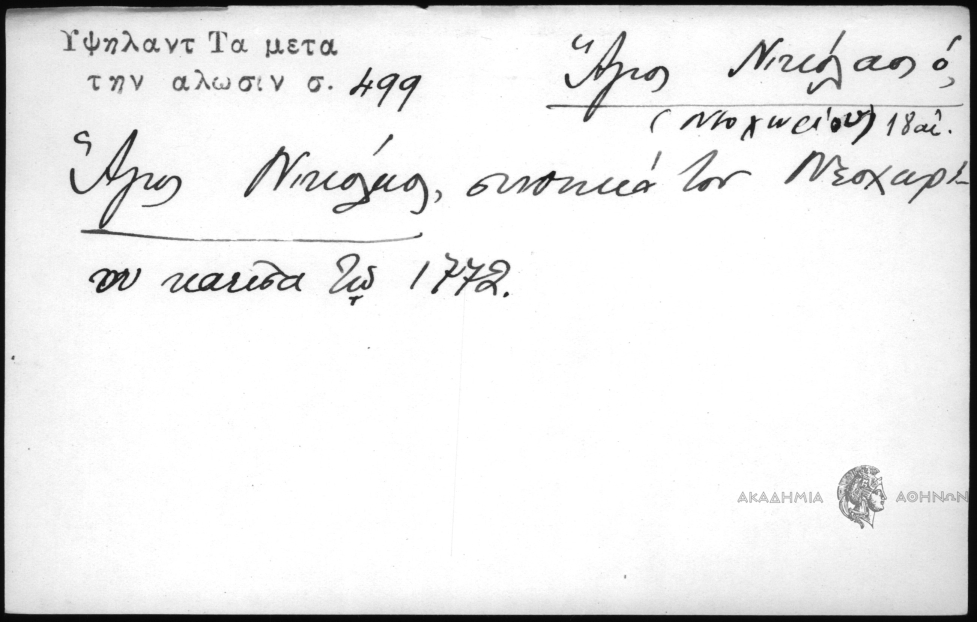 Υψηλαντ Τα μετα
την αλωσιν σ. 499
Ἅγιος Νικόλαος ὁ,
(Νεοχωρίου) 18 αἰ.
Ἅγιος Νικόλαος, συνοικία τοῦ Νεοχωρί-
ου κατεῖσα τῷ 1772.
ΑΚΑΔΗΜΙΑ ΑΘΗΝΩΝ